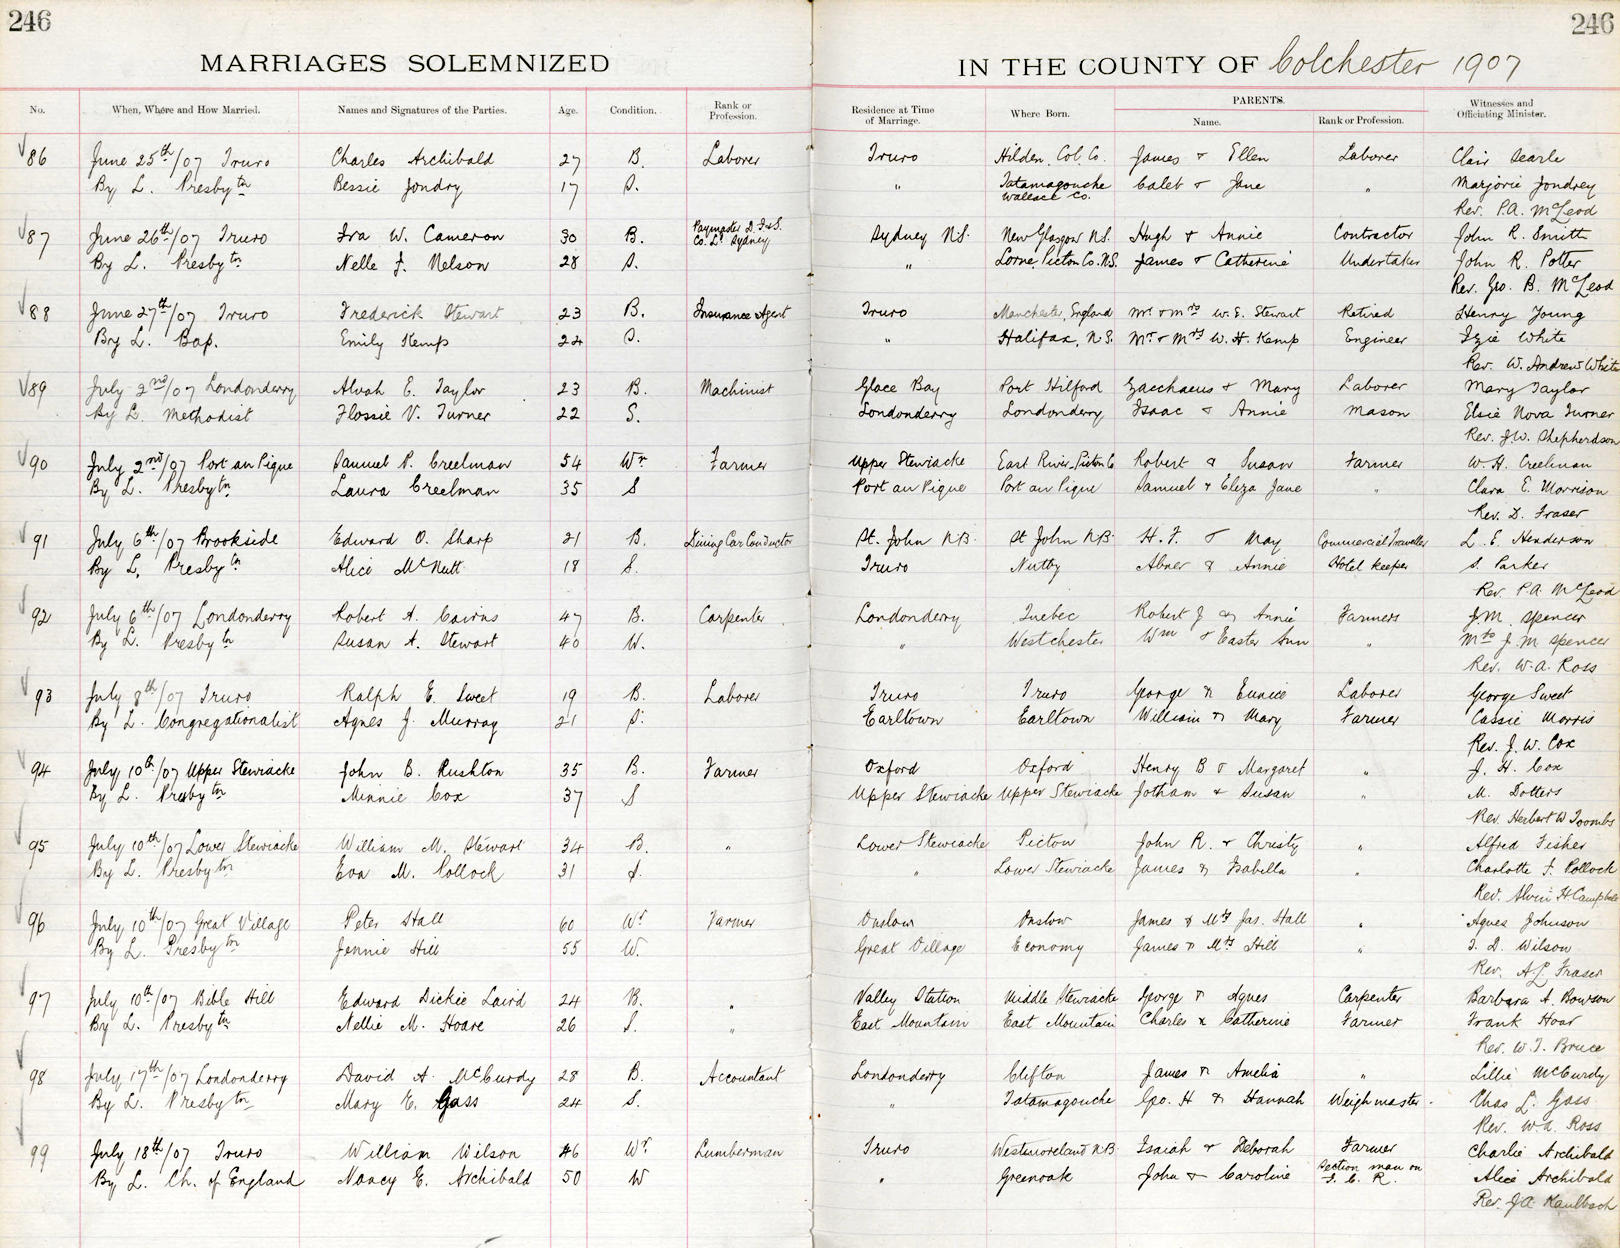 246
246
MARRIAGES SOLEMNIZED
IN THE COUNTY OF Colchester 1907
No. When, Where and How Married. Names and Signatures of the Parties. Age. Condition. Rank or Profession. Residence at Time of Marriage. Where Born. PARENTS. Name. Rank or Profession. Witnesses and Officiating Minister.
86 June 25th/07 Truro Charles Archibald 27 B. Laborer Truro Hilden, Col. Co. James & Ellen Laborer Clair Searle
By L. Presbytn Bessie Jondry 17 S. " Tatamagouche Wallace Co. Caleb & Jane " Marjorie Jondrey
Rev. P.A. McLeod
87 June 26th/07 Truro Ira W. Cameron 30 B. Paymaster D. I. & S. Co. L. Sydney Sydney N.S. New Glasgow N.S. Hugh & Annie Contractor John R. Smith
By L. Presbytn Nelle J. Nelson 28 S. " Lorne, Pictou Co. N.S. James & Catherine Undertaker John R. Potter
Rev. Geo. B. McLeod
88 June 27th/07 Truro Frederick Stewart 23 B. Insurance Agent Truro Manchester, England Mr & Mrs W. E. Stewart Retired Henry Young
By L. Bap. Emily Kemp 24 S. " Halifax, N.S. Mr & Mrs W. H. Kemp Engineer Izie White
Rev. W. Andrew White
89 July 2nd/07 Londonderry Alvah E. Taylor 23 B. Machinist Glace Bay Port Hilford Zacchaeus & Mary Laborer Mary Taylor
By L. Methodist Flossie V. Turner 22 S. Londonderry Londonderry Isaac & Annie Mason Elsie Nova Turner
Rev. J.W. Shepherdson
90 July 2nd/07 Port au Pique Samuel P. Creelman 54 Wr Farmer Upper Stewiacke East River, Pictou Co Robert & Susan Farmer W. H. Creelman
By L. Presbytn Laura Creelman 35 S Port au Pique Port au Pique Samuel & Eliza Jane " Clara E. Morrison
Rev. D. Fraser
91 July 6th/07 Brookside Edward O. Sharp 21 B. Dining Car Conductor St. John N.B. St John N.B. H. F. & May Commercial Traveller L. E. Henderson
By L, Presbytn Alice McNutt 18 S. Truro Nuttby Abner & Annie Hotel keeper S. Parker
Rev. P.A. McLeod
92 July 6th/07 Londonderry Robert A. Cairns 47 B. Carpenter Londonderry Quebec Robert J & Annie Farmers J.M. Spencer
By L. Presbytn Susan A. Stewart 40 W. " Westchester Wm & Easter Ann " Mrs J. M Spencer
Rev. W.A. Ross
93 July 8th/07 Truro Ralph E. Sweet 19 B. Laborer Truro Truro George & Eunice Laborer George Sweet
By L. Congregationalist Agnes J. Murray 21 S. Earltown Earltown William & Mary Farmer Cassie Morris
Rev. J. W. Cox
94 July 10th/07 Upper Stewiacke John B. Rushton 35 B. Farmer Oxford Oxford Henry B & Margaret " J. H. Cox
By L. Presbytn Minnie Cox 37 S Upper Stewiacke Upper Stewiacke Jotham & Susan " M. Dotters
Rev Herbert W Toombs
95 July 10th/07 Lower Stewiacke William M. Stewart 34 B. " Lower Stewiacke Pictou John R. & Christy " Alfred Fisher
By L. Presbytn Eva M. Pollock 31 S. " Lower Stewiacke James & Isabella " Charlotte F. Pollock
Rev. Alvin H Campbell
96 July 10th/07 Great Village Peter Stall 60 Wr Farmer Onslow Onslow James & Mrs Jas. Stall " Agnes Johnson
By L. Presbytn Jennie Hill 55 W. Great Village Economy James & Mrs Hill " T. D. Wilson
Rev. A L Fraser
97 July 10th/07 Bible Hill Edward Dickie Laird 24 B. " Valley Station Middle Stewiacke George & Agnes Carpenter Barbara A. Bowson
By L. Presbytn Nellie M. Hoare 26 S. " East Mountain East Mountain Charles & Catherine Farmer Frank Hoar
Rev. W. T. Bruce
98 July 17th/07 Londonderry David A. McCurdy 28 B. Accountant Londonderry Clifton James & Amelia " Lillie McCurdy
By L. Presbytn Mary E. Gass 24 S. " Tatamagouche Geo. H & Hannah Weigh master Chas L. Gass
Rev. W.A. Ross
99 July 18th/07 Truro William Wilson 46 Wr Lumberman Truro Westmoreland N.B Isaiah & Deborah Farmer Charlie Archibald
By L. Ch. of England Nancy E. Archibald 50 W " Greenoak John & Caroline Section man on I. C. R. Alice Archibald
Rev. J.A. Kaulbach